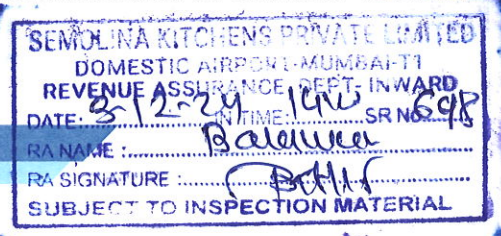 SEMOLINA KITCHENS PRIVATE LIMITED
DOMESTIC AIRPORT-MUMBAI-T1
REVENUE ASSURANCE DEPT- INWARD
DATE: 3-12-24 IN TIME: SR No 698
RA NAME :
RA SIGNATURE :
SUBJECT TO INSPECTION MATERIAL